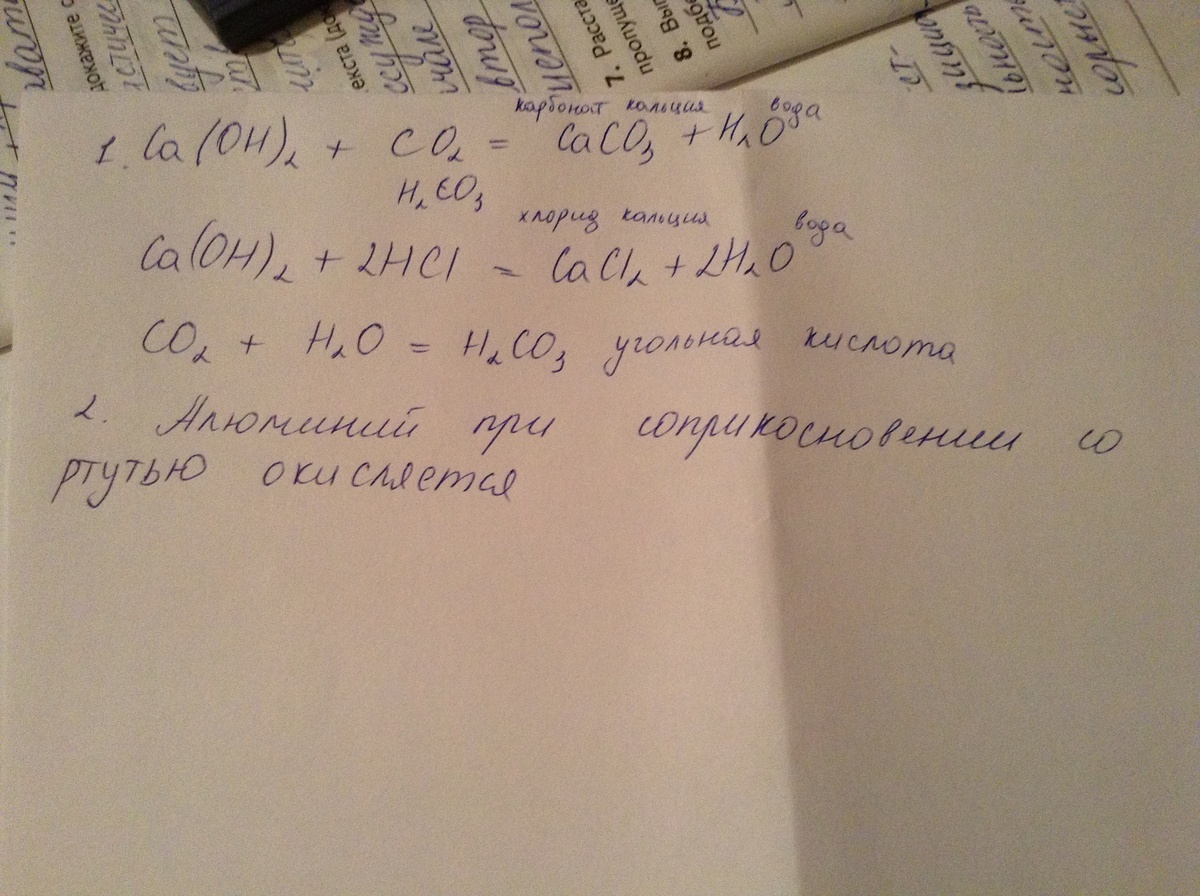 докажите с
екста (до
7. Расста
пропуще
8. Вып
подо
карбонат кальция вода
1. Ca(OH)₂ + CO₂ = CaCO₃ + H₂O
H₂CO₃
хлорид кальция вода
Ca(OH)₂ + 2HCl = CaCl₂ + 2H₂O
CO₂ + H₂O = H₂CO₃ угольная кислота
2. Алюминий при соприкосновении со
ртутью окисляется